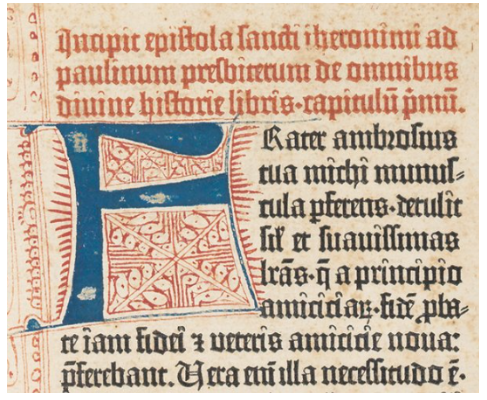 Incipit epistola sancti iheronimi ad
paulinum presbiterum de omnibus
divine historie libris·capitulū p̄mū.
FRater ambrosius
tua michi munus-
cula ꝑferens·detulit
sil̄ et suavissimas
lr̄as·q̄ a principio
amiciciaꝝ·fidē ꝓba-
te iam fidei ⁊ veteris amicicie nova:
p̄ferebant. Vera eni̅ illa necessitudo ē·